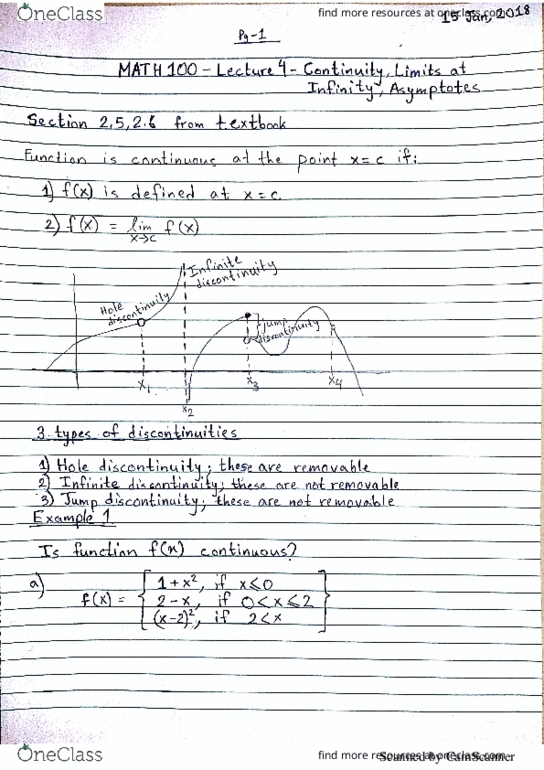 OneClass
find more resources at oneclass.com
15 Jan, 2018
Pg-1
MATH 100 - Lecture 4 - Continuity, Limits at
Infinity, Asymptotes
Section 2,5,2.6 from textbook
Function is continuous at the point x=c if:
1) f(x) is defined at x=c.
2) f(x) = lim f(x)
x→c
Infinite
discontinuity
Hole
discontinuity
Jump
discontinuity
x1
x2
x3
x4
3 types of discontinuities
1) Hole discontinuity; these are removable
2) Infinite discontinuity; these are not removable
3) Jump discontinuity; these are not removable
Example 1
Is function f(x) continuous?
a)
f(x) = [ 1+x², if x≤0
2-x, if 0<x≤2
(x-2)², if 2<x ]
OneClass
find more resources at oneclass.com
Scanned by CamScanner